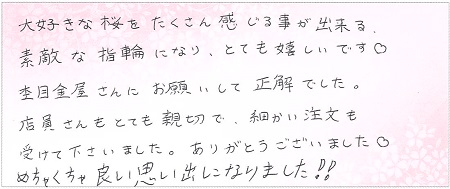 大好きな桜をたくさん感じる事が出来る、
素敵な指輪になり、とても嬉しいです♡
杢目金屋さんにお願いして正解でした。
店員さんもとても親切で、細かい注文も
受けて下さいました。ありがとうございました♡
めちゃくちゃ良い思い出になりました!!